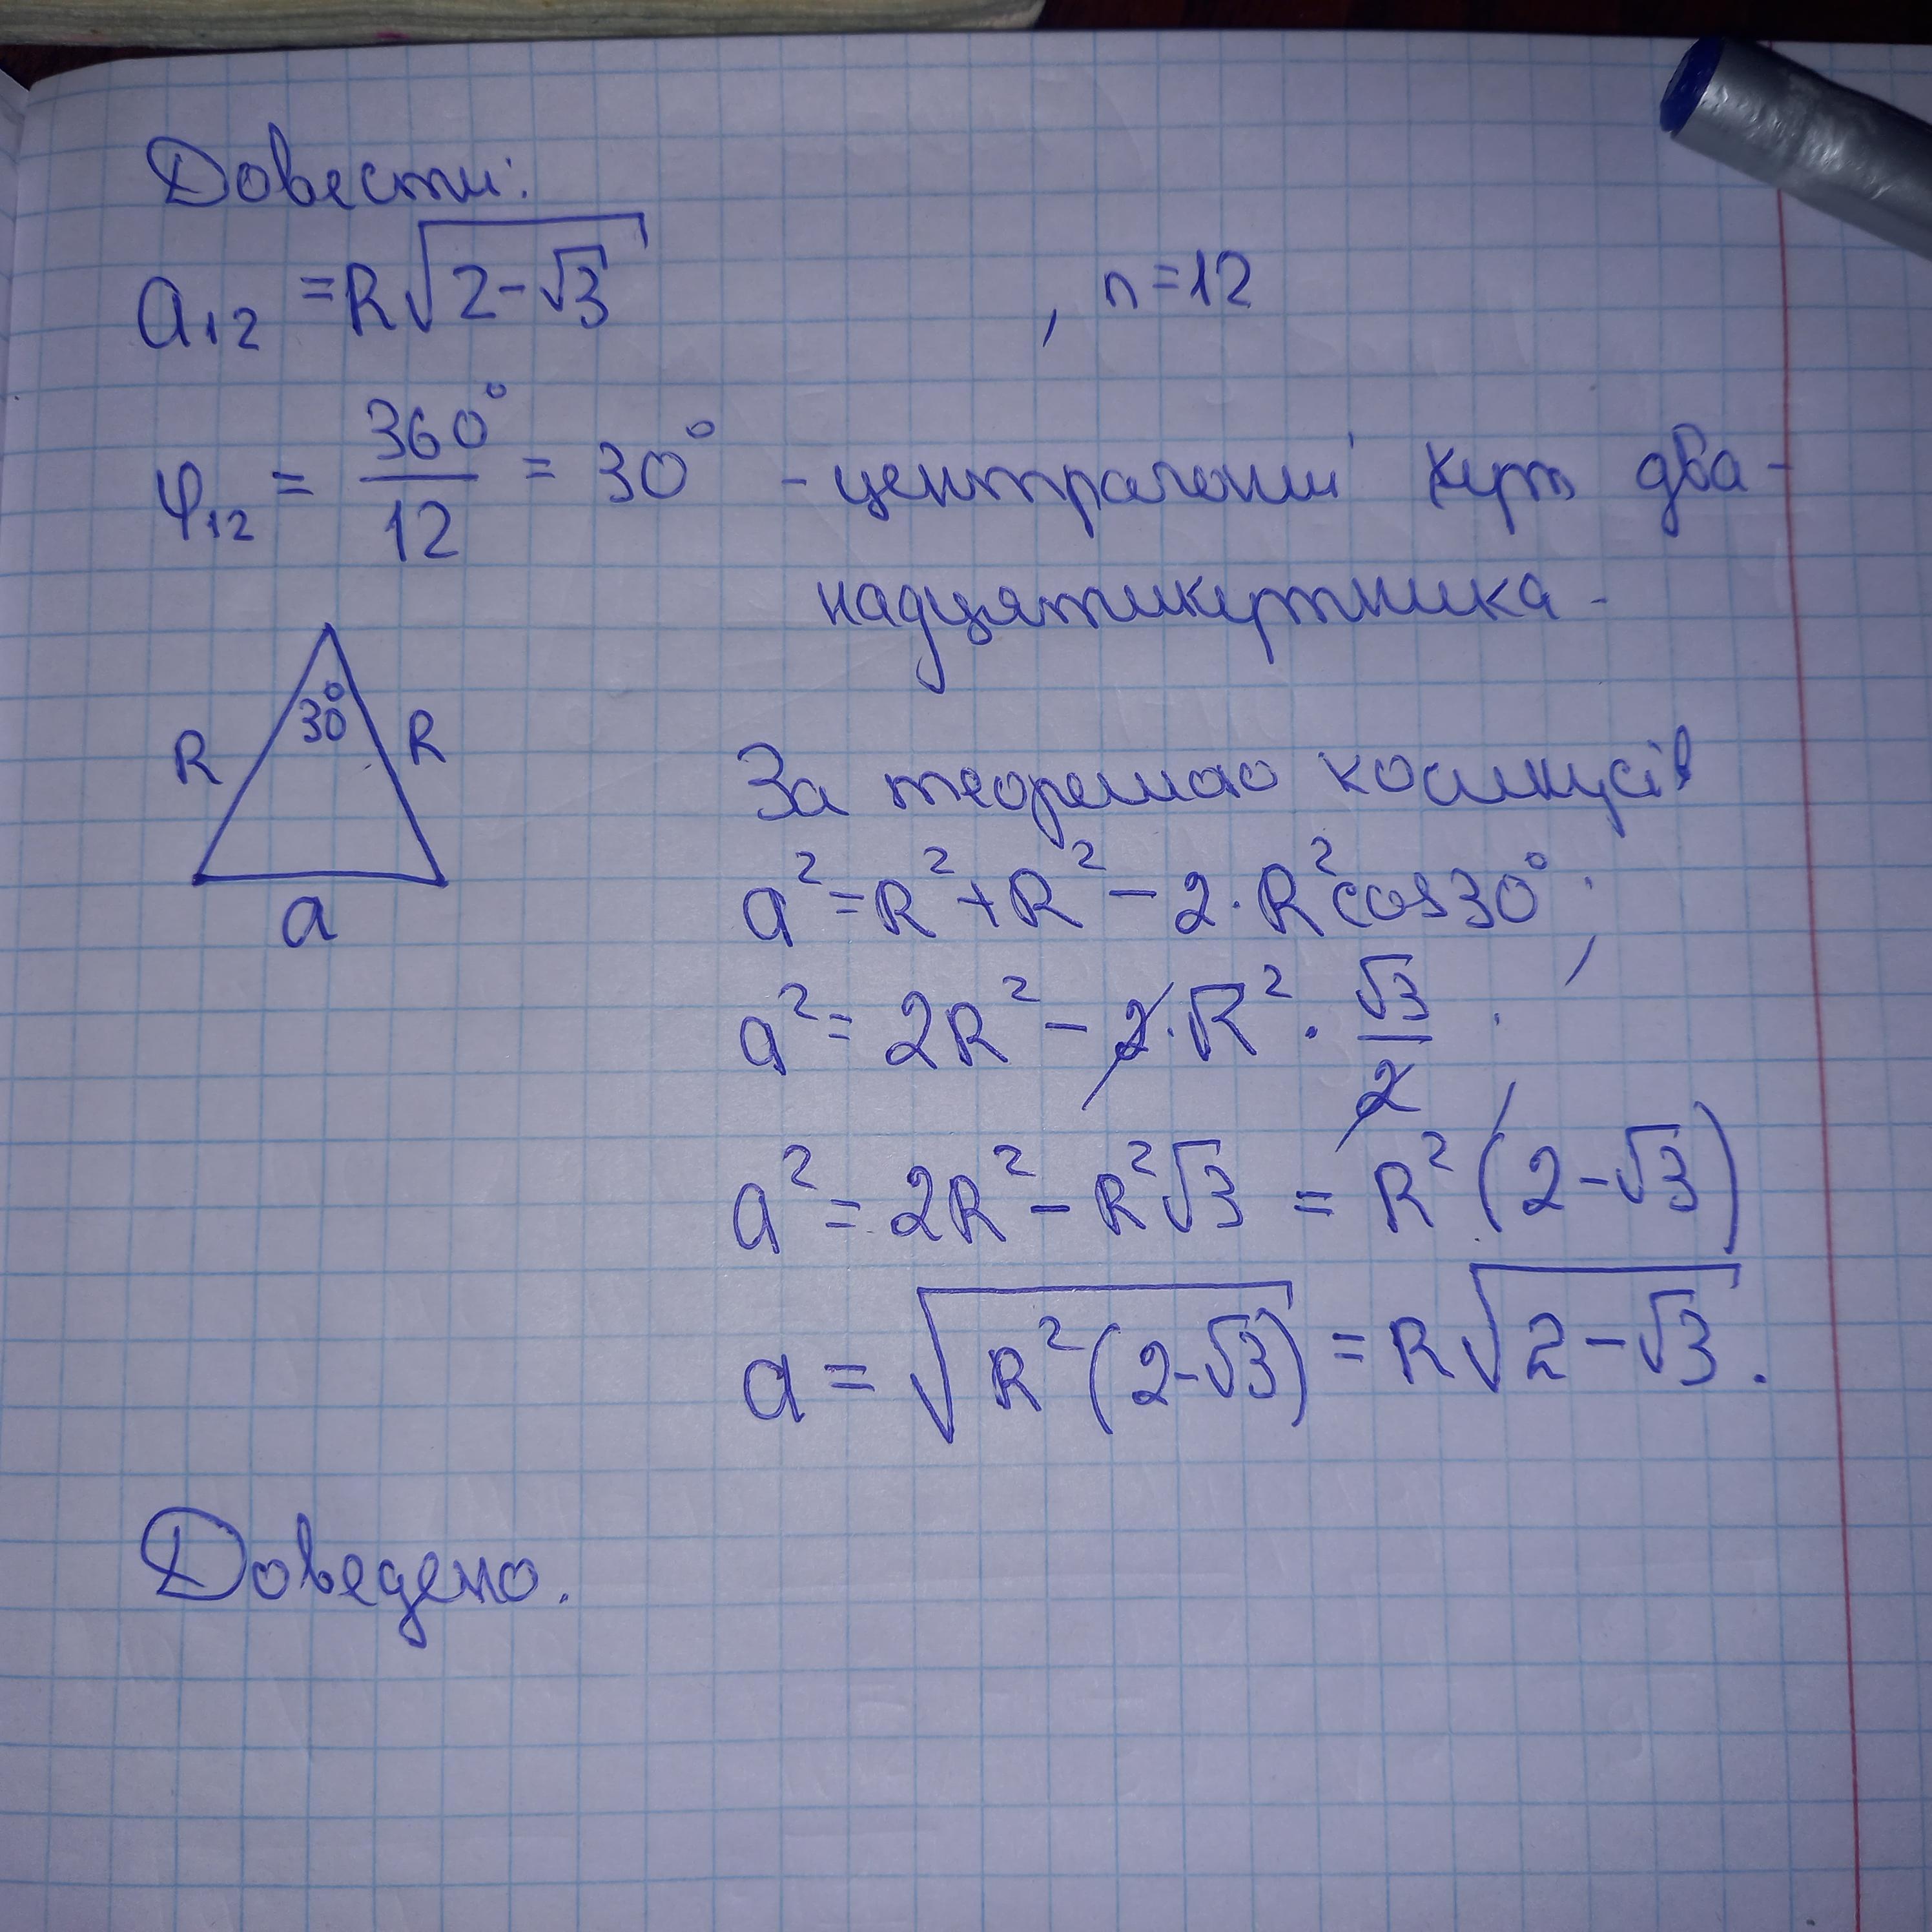 Довести:
a₁₂ = R√(2-√3) , n=12
φ₁₂ = 360°/12 = 30° - центральний кут два-
надцятикутника.
30°
R R
a
За теоремою косинусів
a² = R² + R² - 2·R²cos30°;
a² = 2R² - 2·R²·√3/2;
a² = 2R² - R²√3 = R²(2-√3)
a = √(R²(2-√3)) = R√(2-√3).
Доведено.